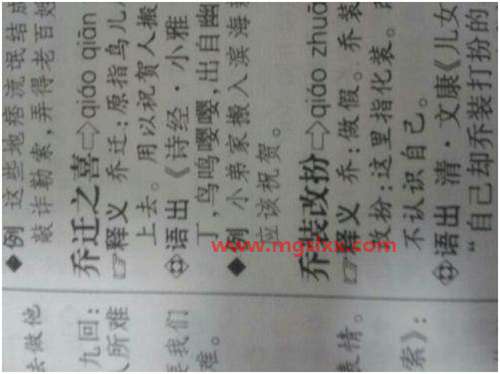 去做他
九回：
人所难
要我们
难。
表情。
索》：
◆例 这些地痞流氓结成
敲诈勒索，弄得老百姓
乔迁之喜⇨qiáo qiān
☞释义 乔迁：原指鸟儿
上去。用以祝贺人搬
语出 《诗经·小雅
丁，鸟鸣嘤嘤，出自幽
◆例 小弟家搬入滨海
应该祝贺。
乔装改扮⇨qiáo zhuā
☞释义 乔：做假。乔装
改扮：这里指化装。
不认识自己。
语出 清·文康《儿女
“自己却乔装打扮的
www.mgslxx.com